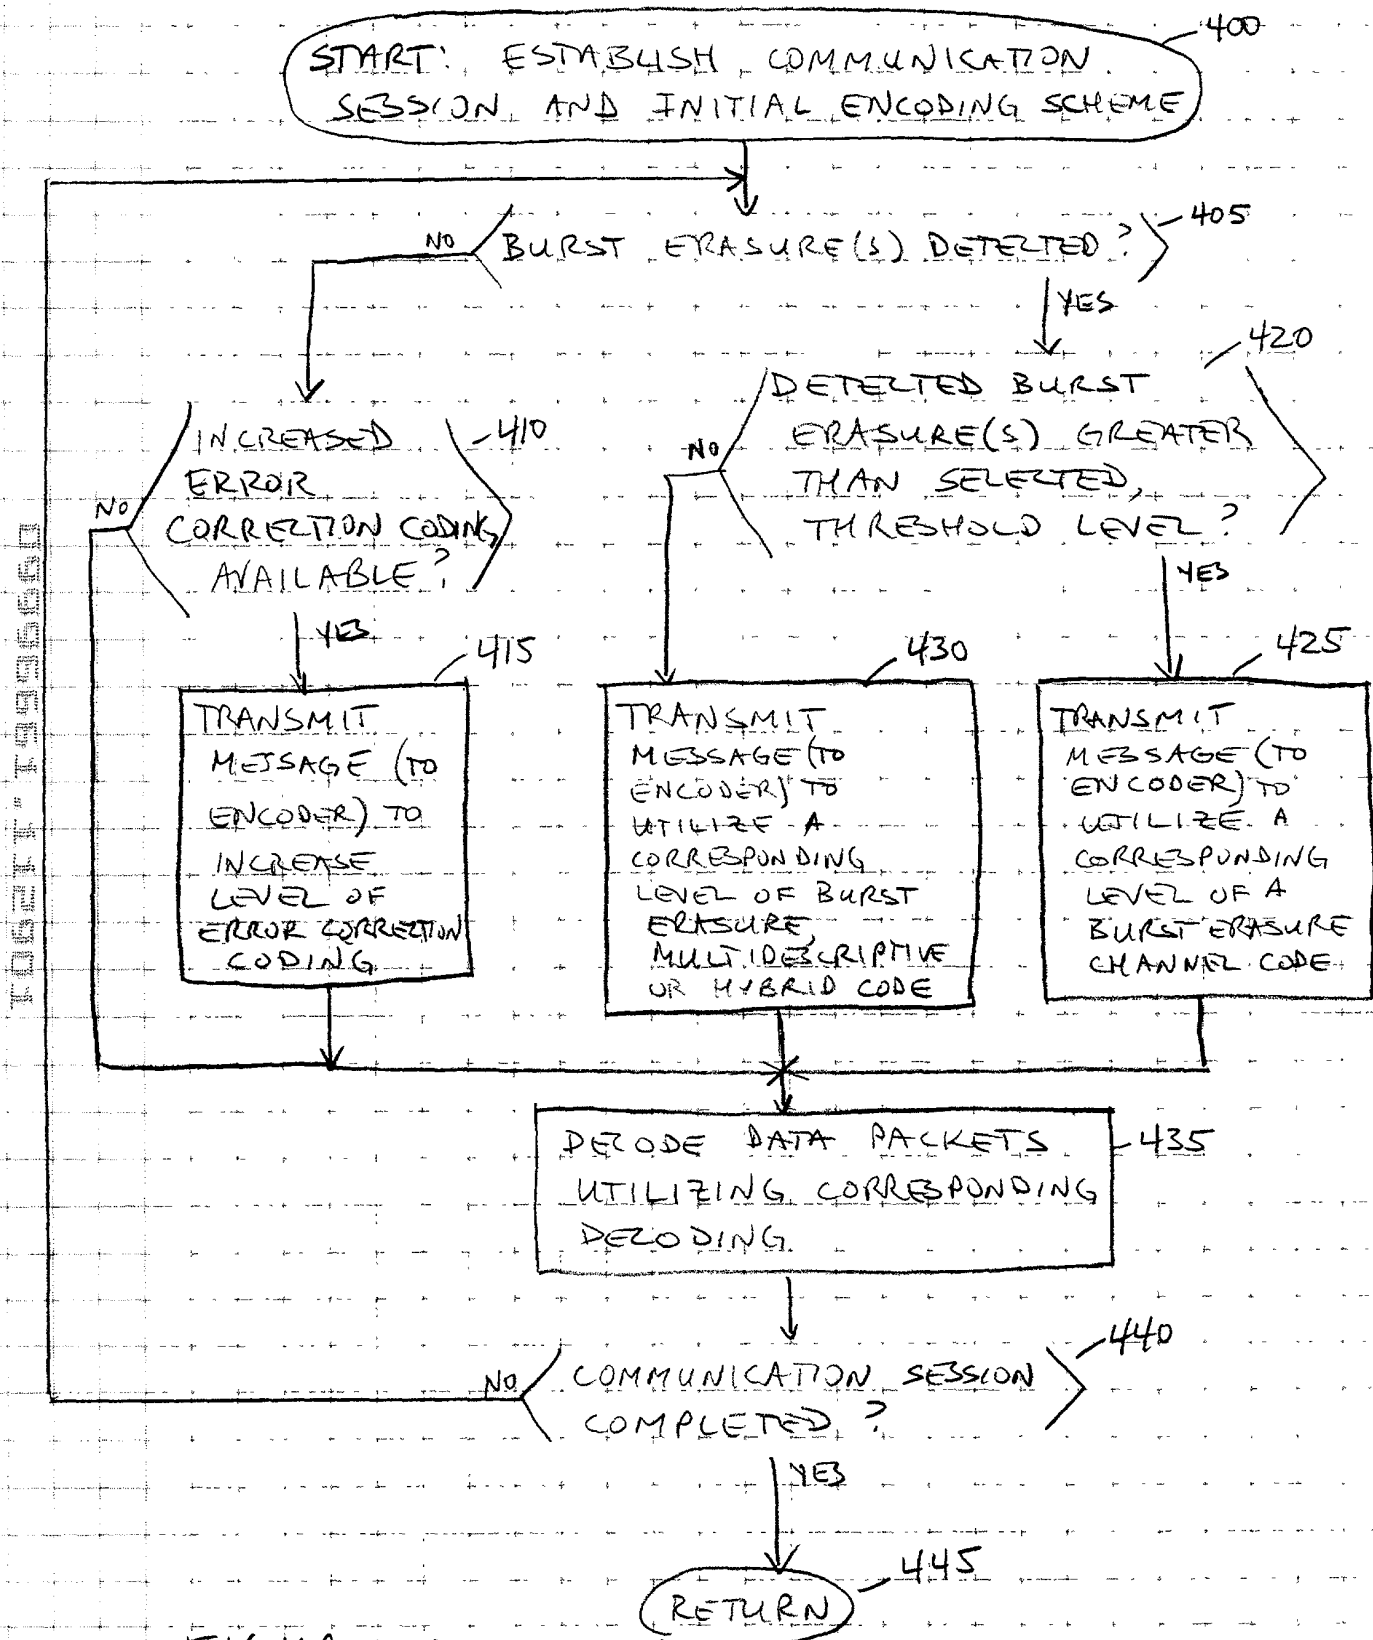 400
START: ESTABLISH COMMUNICATION
SESSION AND INITIAL ENCODING SCHEME
405
NO
BURST ERASURE(S) DETECTED?
YES
420
DETECTED BURST
ERASURE(S) GREATER
THAN SELECTED
THRESHOLD LEVEL?
NO
YES
INCREASED
ERROR
CORRECTION CODING
AVAILABLE?
410
NO
YES
415
TRANSMIT
MESSAGE (TO
ENCODER) TO
INCREASE
LEVEL OF
ERROR CORRECTION
CODING
430
TRANSMIT
MESSAGE (TO
ENCODER) TO
UTILIZE A
CORRESPONDING
LEVEL OF BURST
ERASURE,
MULTIDESCRIPTIVE
OR HYBRID CODE
425
TRANSMIT
MESSAGE (TO
ENCODER) TO
UTILIZE A
CORRESPONDING
LEVEL OF A
BURST ERASURE
CHANNEL CODE
DECODE DATA PACKETS
UTILIZING CORRESPONDING
DECODING
435
440
NO
COMMUNICATION SESSION
COMPLETED?
YES
445
RETURN